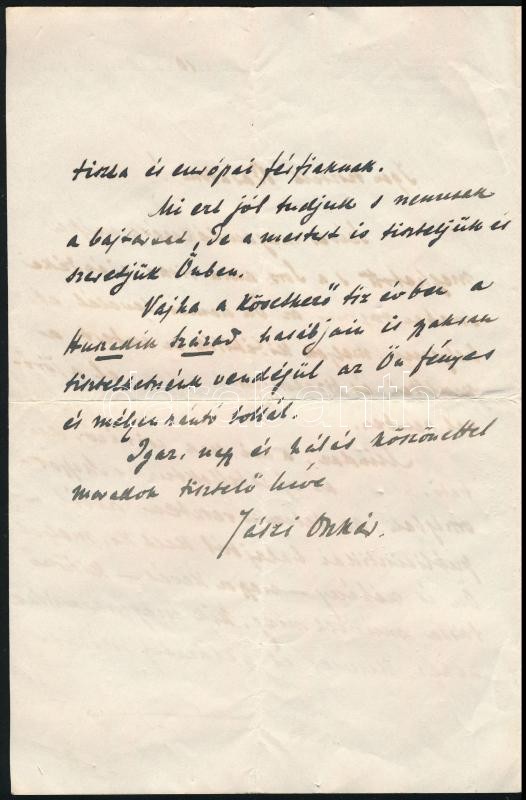 tiszta és európai férfiaknak.
Mi ezt jól tudjuk s nemcsak
a bajtársat, de a mestert is tiszteljük és
szeretjük Önben.
Vajha a következő tiz évben a
Huszadik Század hasábjain is gyakran
tisztelhetnénk vendégül az Ön fényes
és mélyen szántó tollát.
Igaz, nagy és hálás köszönettel
maradok tisztelő híve
Jászi Oszkár.
darabanth